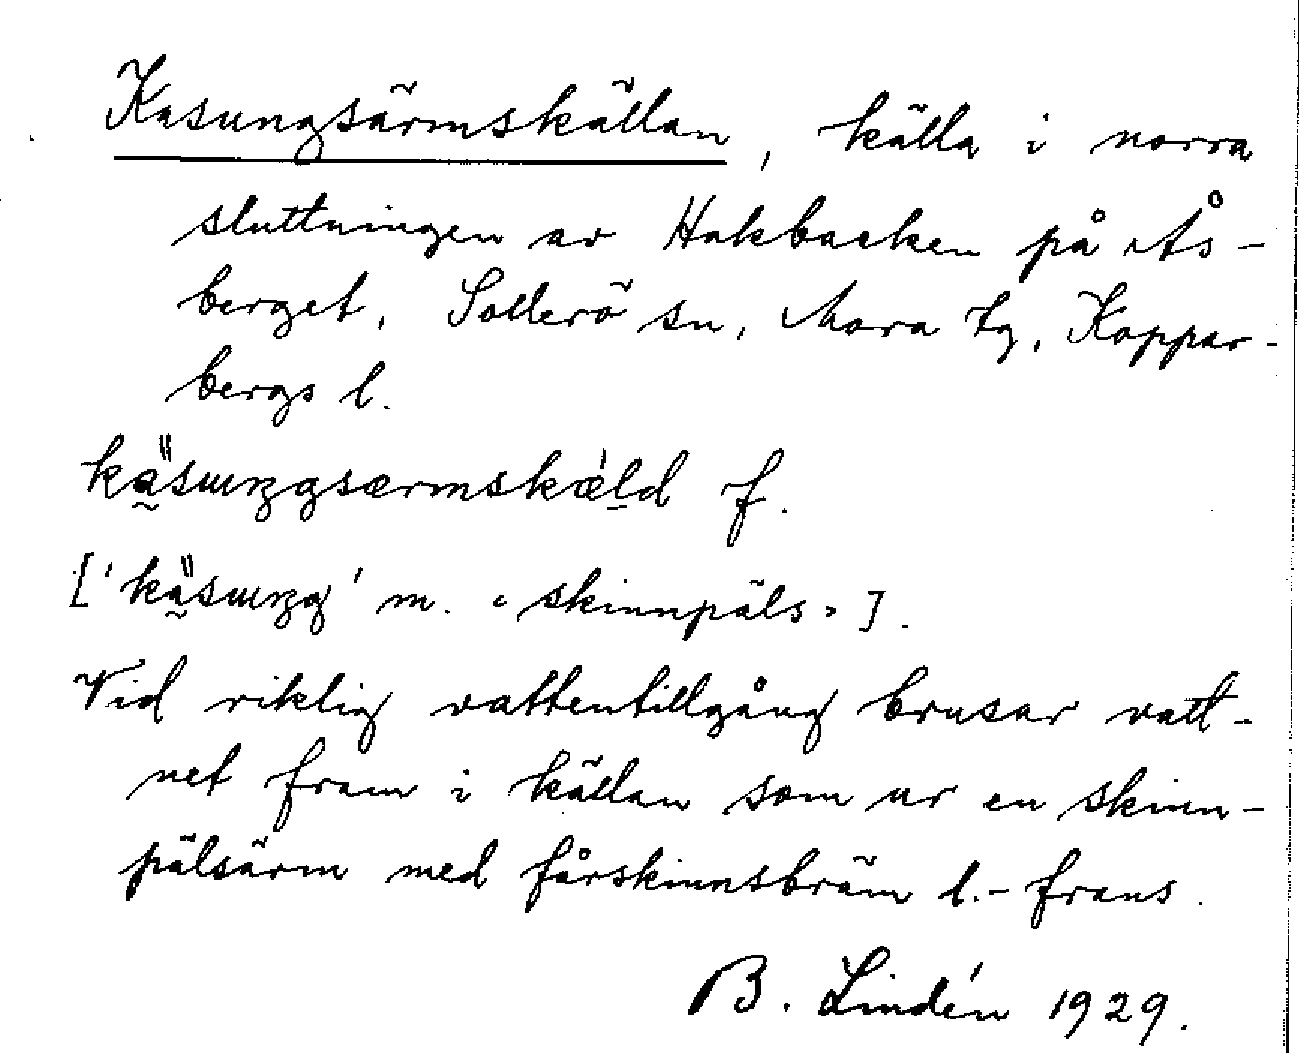 Kasungsärmskällan, källa i norra
sluttningen av Hakbacken på Ås-
berget, Sollerö sn, Mora tg, Koppar-
bergs l.
f.
m. "skinnpäls"].
Vid riklig vattentillgång brusar vatt-
net fram i källan som ur en skinn-
pälsärm med fårskinnsbräm l. - frans.
B. Lindén 1929.